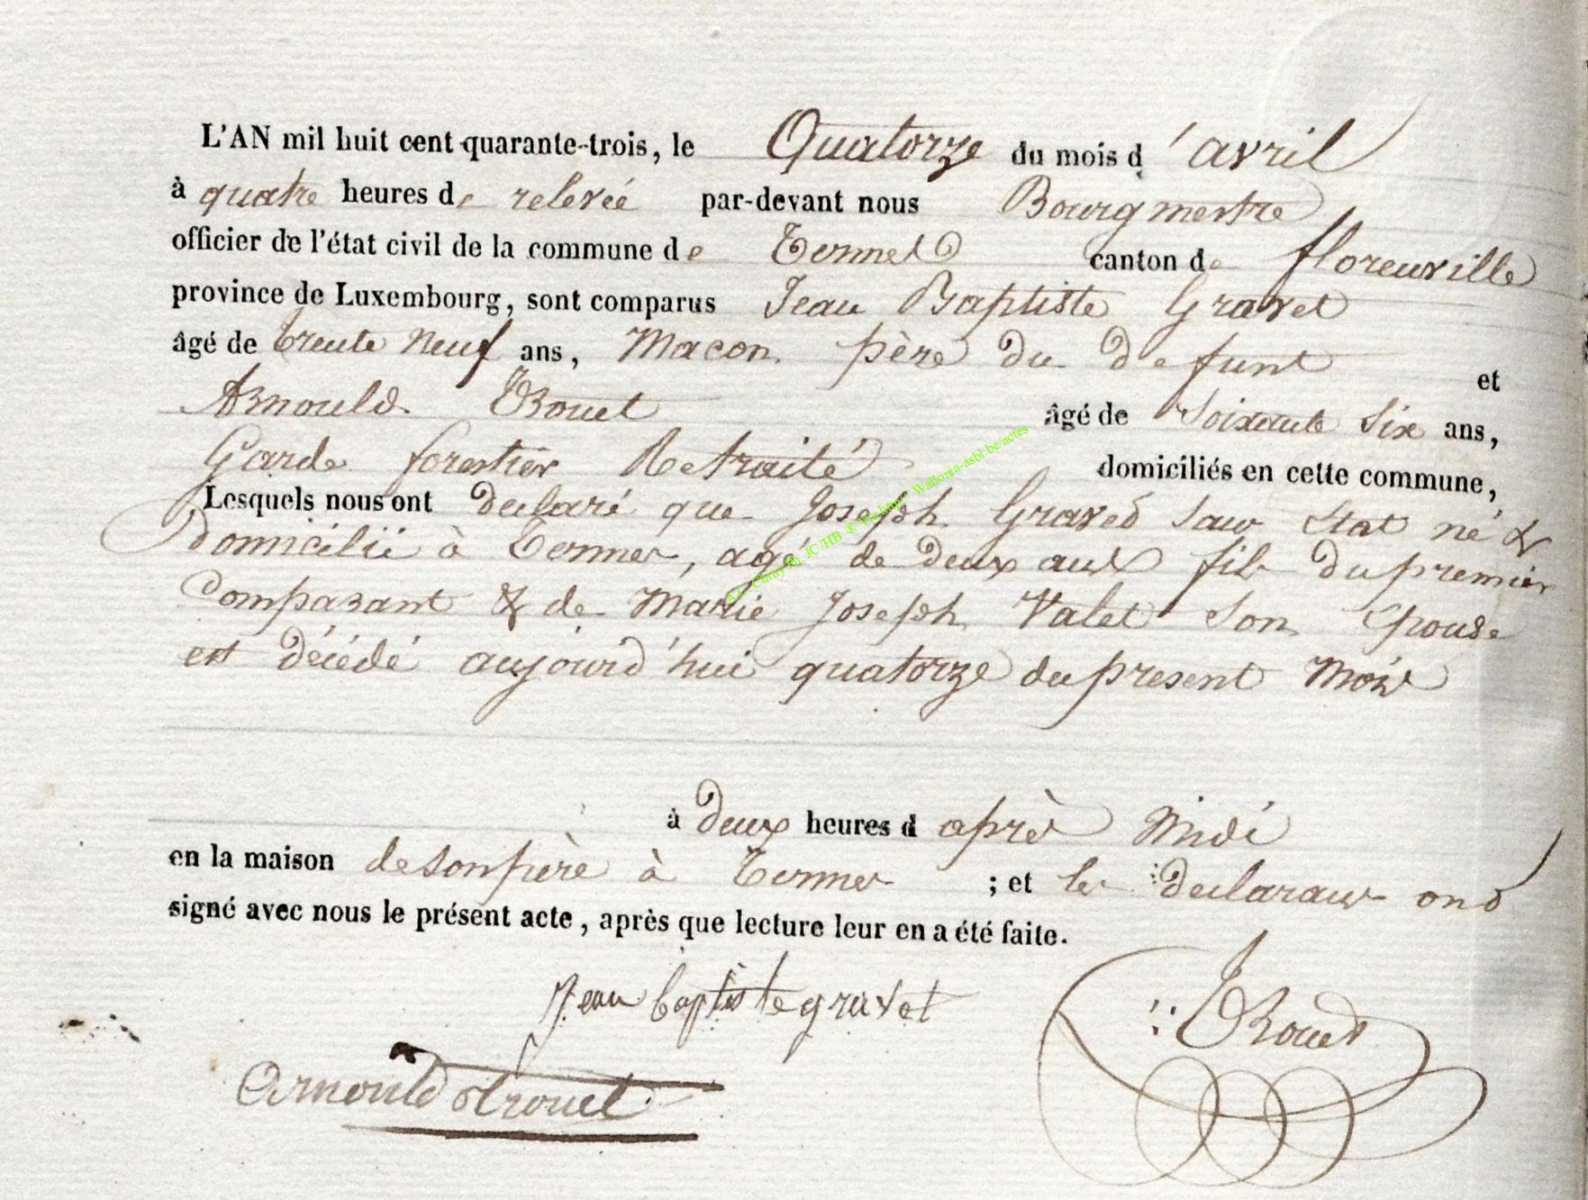 L'AN mil huit cent quarante-trois, le Quatorze du mois d'avril
à quatre heures de relevée par-devant nous Bourgmestre
officier de l'état civil de la commune de Termes canton de florenville
province de Luxembourg, sont comparus Jean Baptiste Gravet
âgé de trente neuf ans, Macon père du defunt et
Arnould Trouet âgé de Soixante Six ans,
Garde forestier Retraité domiciliés en cette commune,
Lesquels nous ont declaré que Joseph Gravet sans Etat né &
Domicilié à Termes, agé de deux ans fils du premier
Comparant & de Marie Joseph Valet Son Epouse
est décédé aujourd'hui quatorze du present Mois
à deux heures d après Midi
en la maison de son père à Termes ; et les declarans ont
signé avec nous le présent acte, après que lecture leur en a été faite.
Jean baptiste gravet
Trouet
Arnould trouet